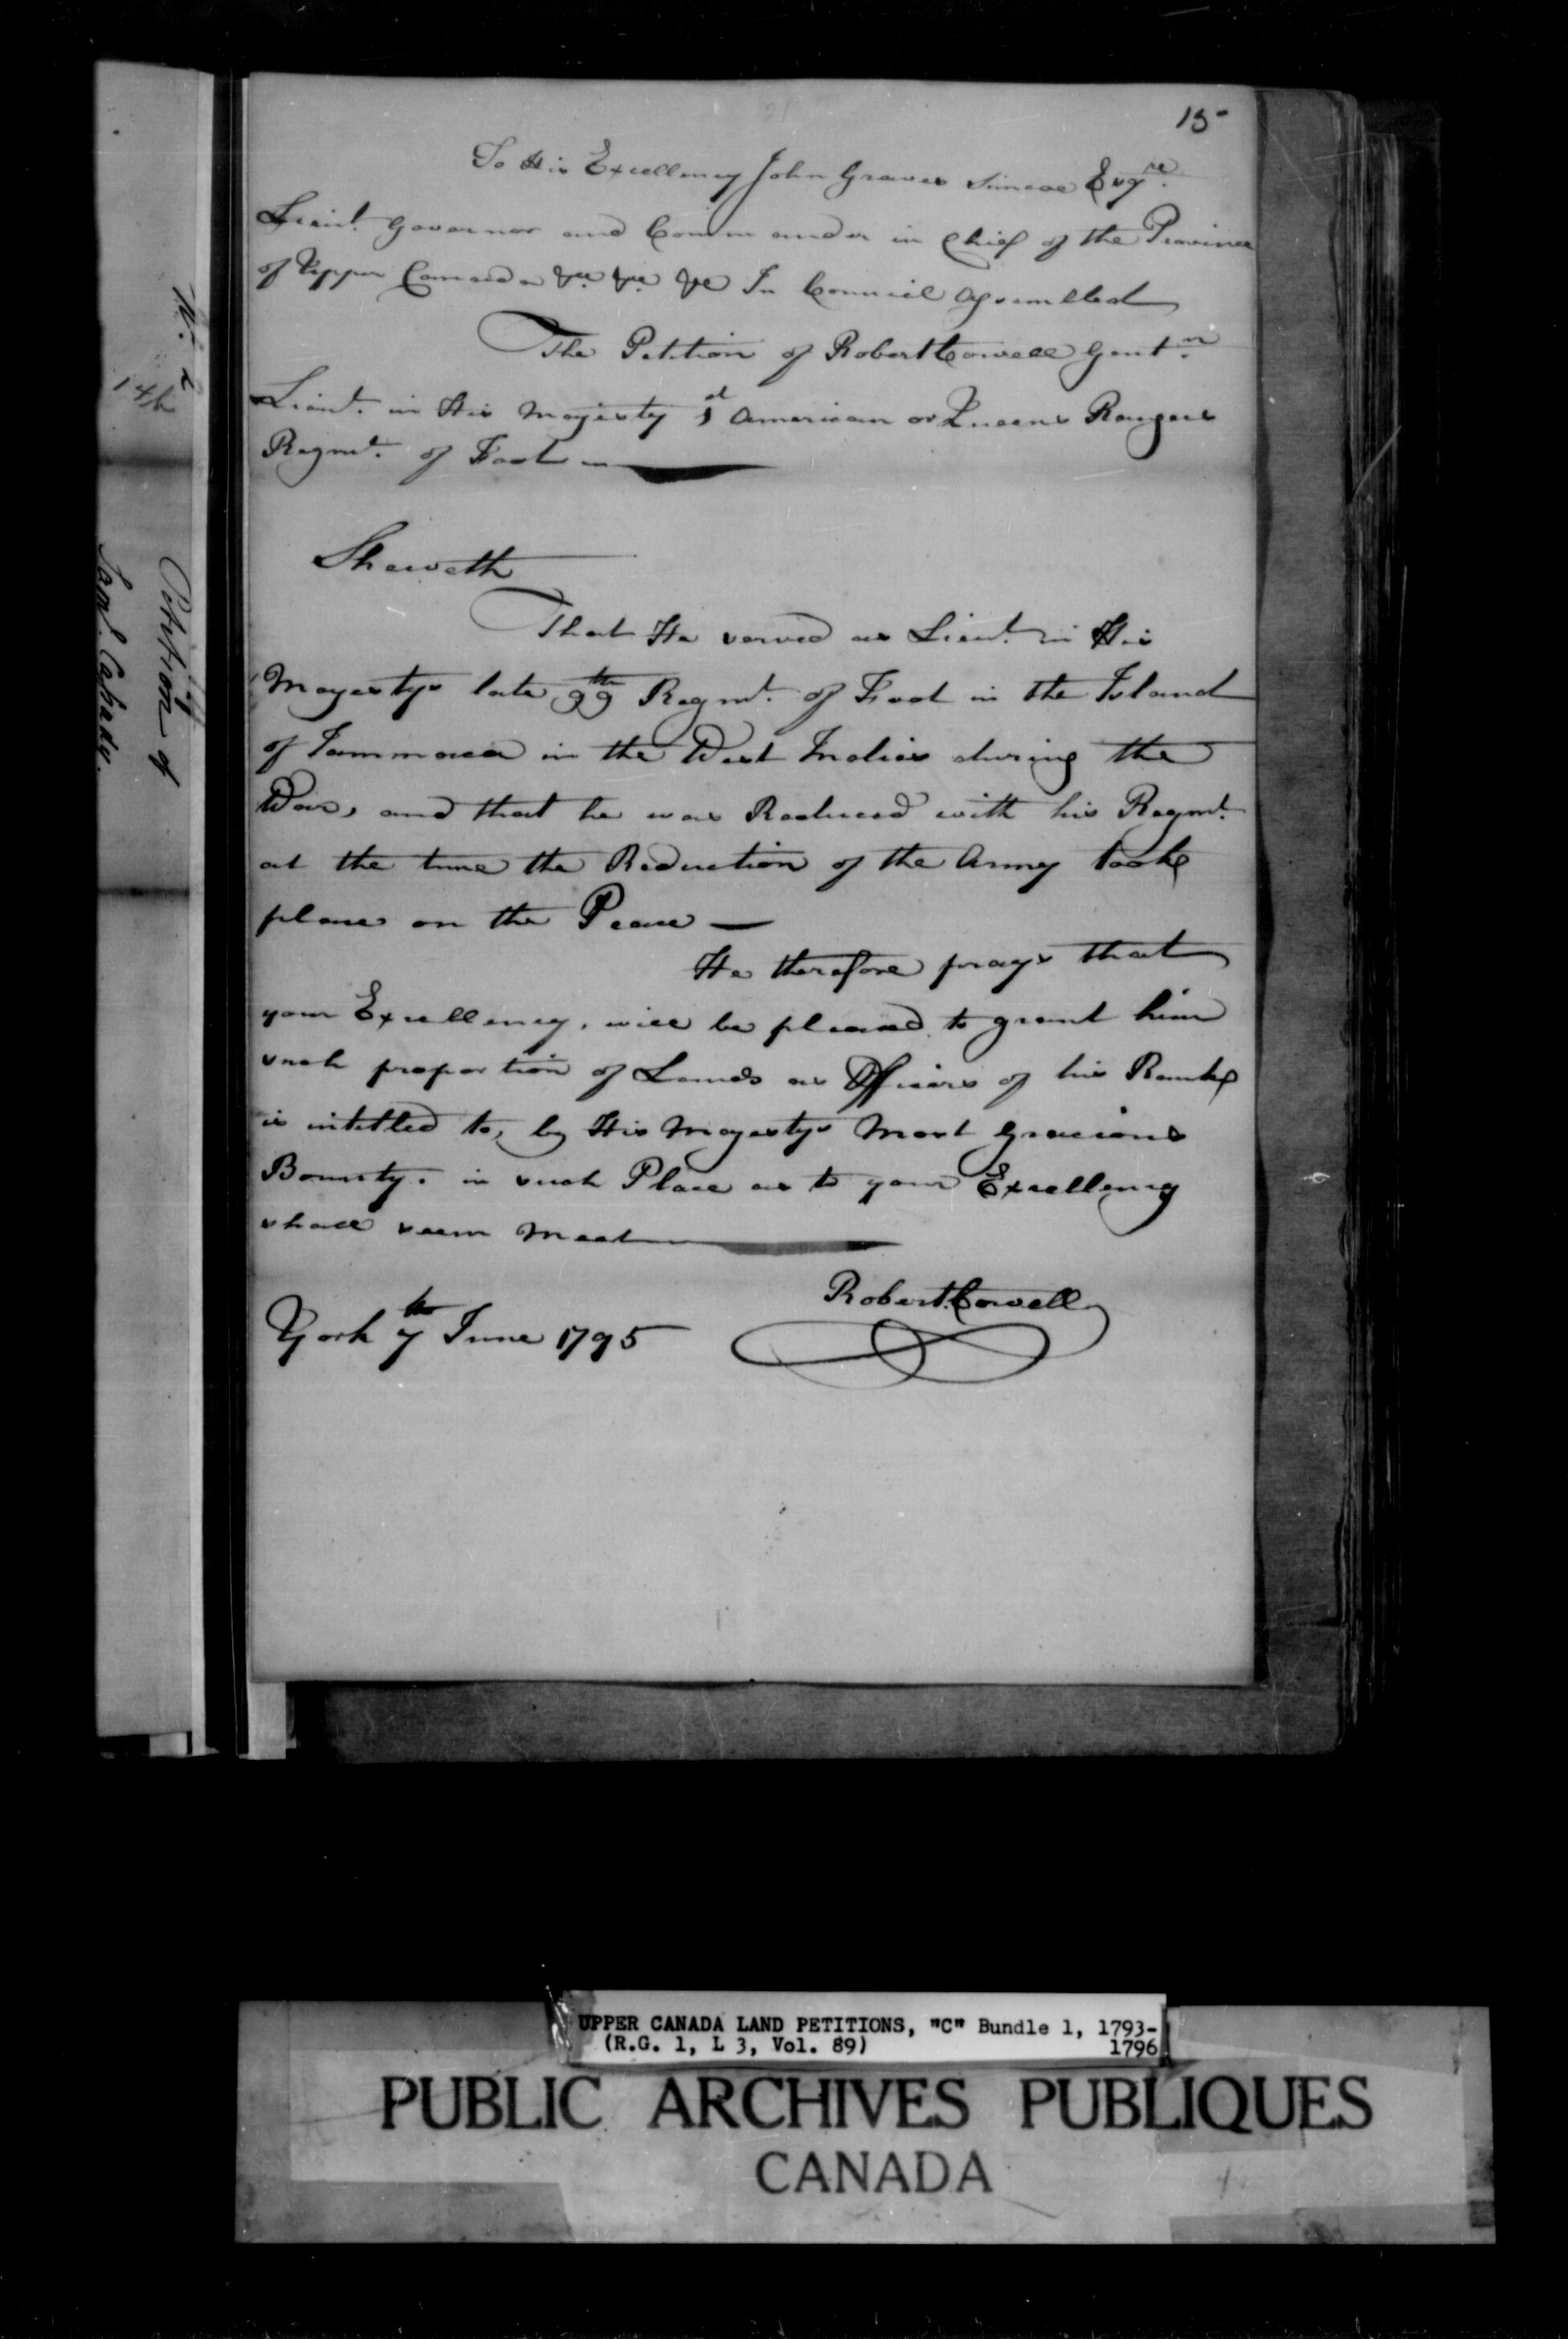 15
To His Excellency John Graves Simcoe Esqre.
Lieut. Governor and Commander in Chief of the Province
of Upper Canada &c. &c. &c In Council Assembled
The Petition of Robert Cowell Gentn.
Lieut. in His Majesty 1st American or Queens Rangers
Regmt. of Foot
Sheweth
That He served as Lieut. in His
Majestys late 99th Regmt. of Foot in the Island
of Jammaca in the West Indies during the
War, and that he was Reduced with his Regmt.
at the time the Reduction of the Army tooke
place on the Peace —
He therefore prays that
your Excellency, will be pleased to grant him
such proportion of Lands as Officers of his Ranke
is intitled to, by His Majestys Most Gracious
Bounty. in such Place as to your Excellency
shall seem Meet
Robert Cowell
York 7th June 1795
No. 2
Petition of
UPPER CANADA LAND PETITIONS, "C" Bundle 1, 1793-
(R.G. 1, L 3, Vol. 89) 1796
PUBLIC ARCHIVES PUBLIQUES
CANADA